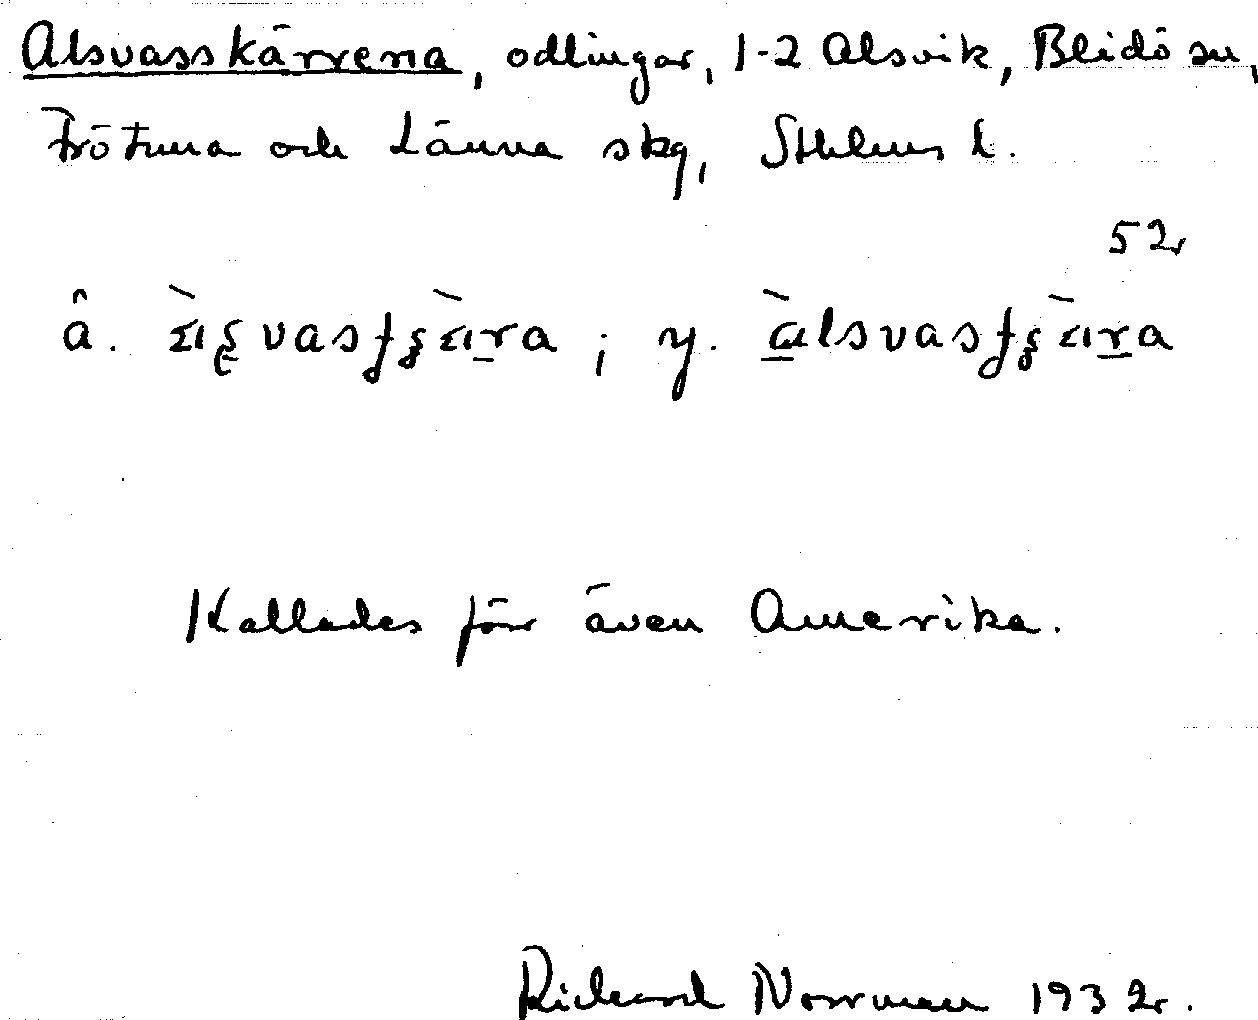 Alsvasskärrena, odlingar, 1-2 Alsvik, Blidö sn,
Frötuna och Länna skg, Sthlms l.
52
â. ; y.
Kallades förr även Amerika.
Richard Norrman 1932.